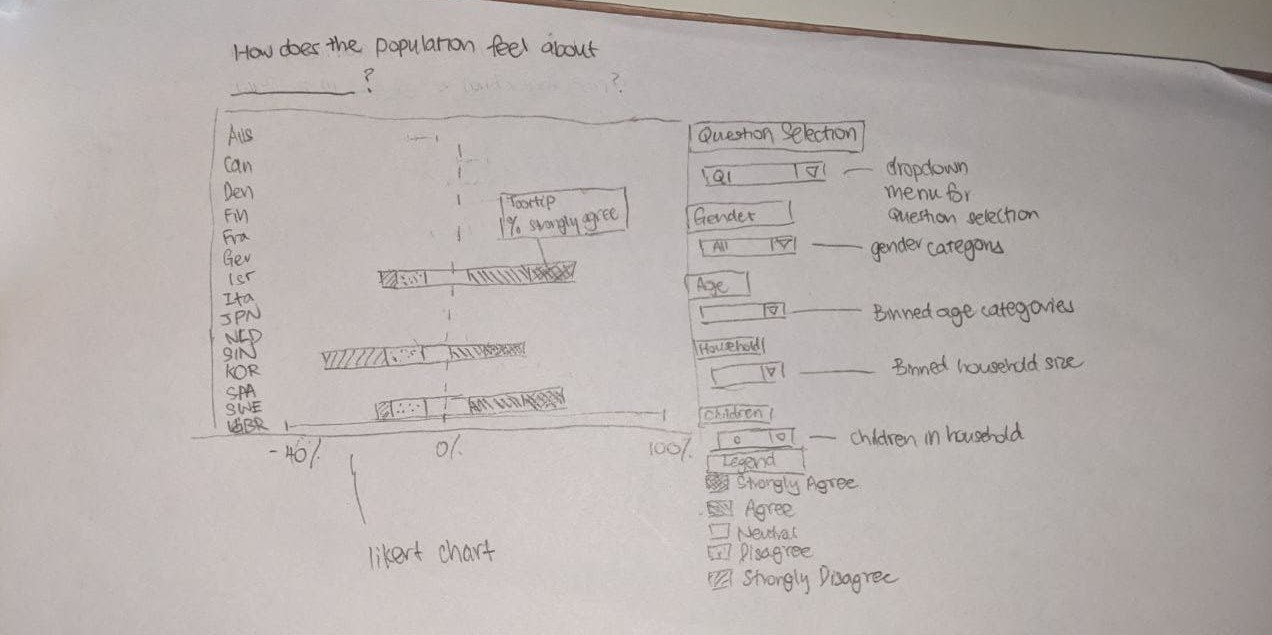 How does the population feel about
________ ?
Aus
Can
Den
Fin
Fra
Ger
Isr
Ita
JPN
NLD
SIN
KOR
SPA
SWE
GBR
-40%
0%
100%
likert chart
Tooltip
% strongly agree
Question Selection
Q1
dropdown
menu for
question selection
Gender
All
gender categories
Age
Binned age categories
Household
Binned household size
Children
0
children in household
Legend
Strongly Agree
Agree
Neutral
Disagree
Strongly Disagree